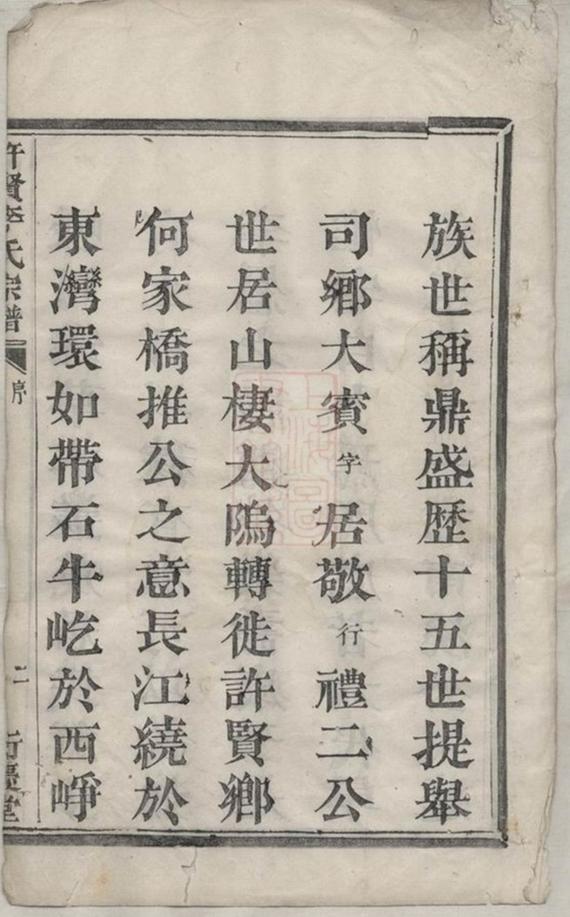 族世稱鼎盛歴十五世提舉
司鄉大賓字居敬行禮二公
世居山棲大隖轉徙許賢鄉
何家橋推公之意長江繞於
東灣環如帶石牛屹於西崢
許賢李氏宗譜 序 二